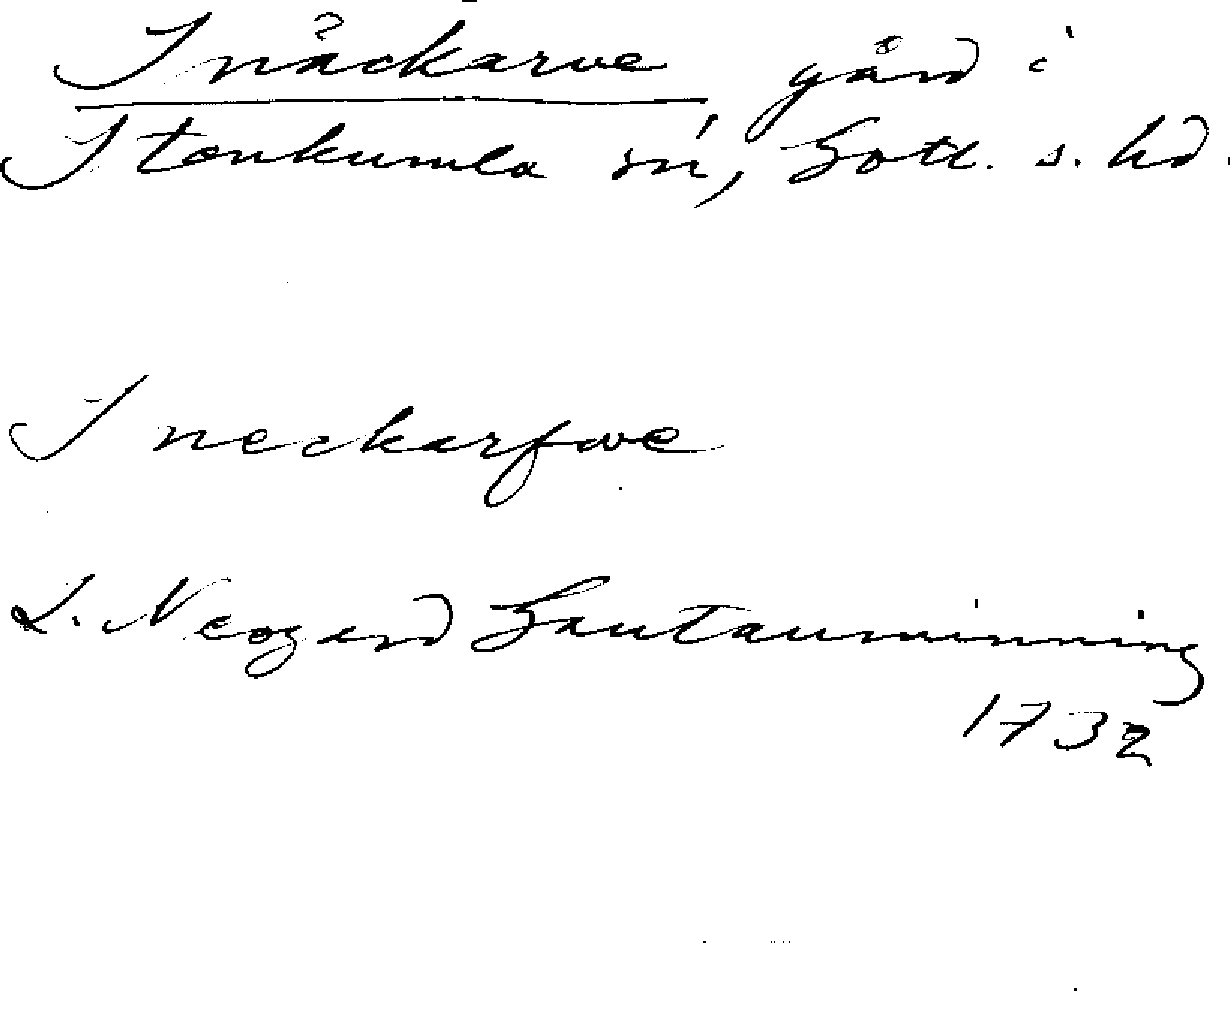 Snäckarve gård i
Stenkumla sn, Gotl. s. hd.
Sneckarfwe
L. Neogard Gautauminning
1732